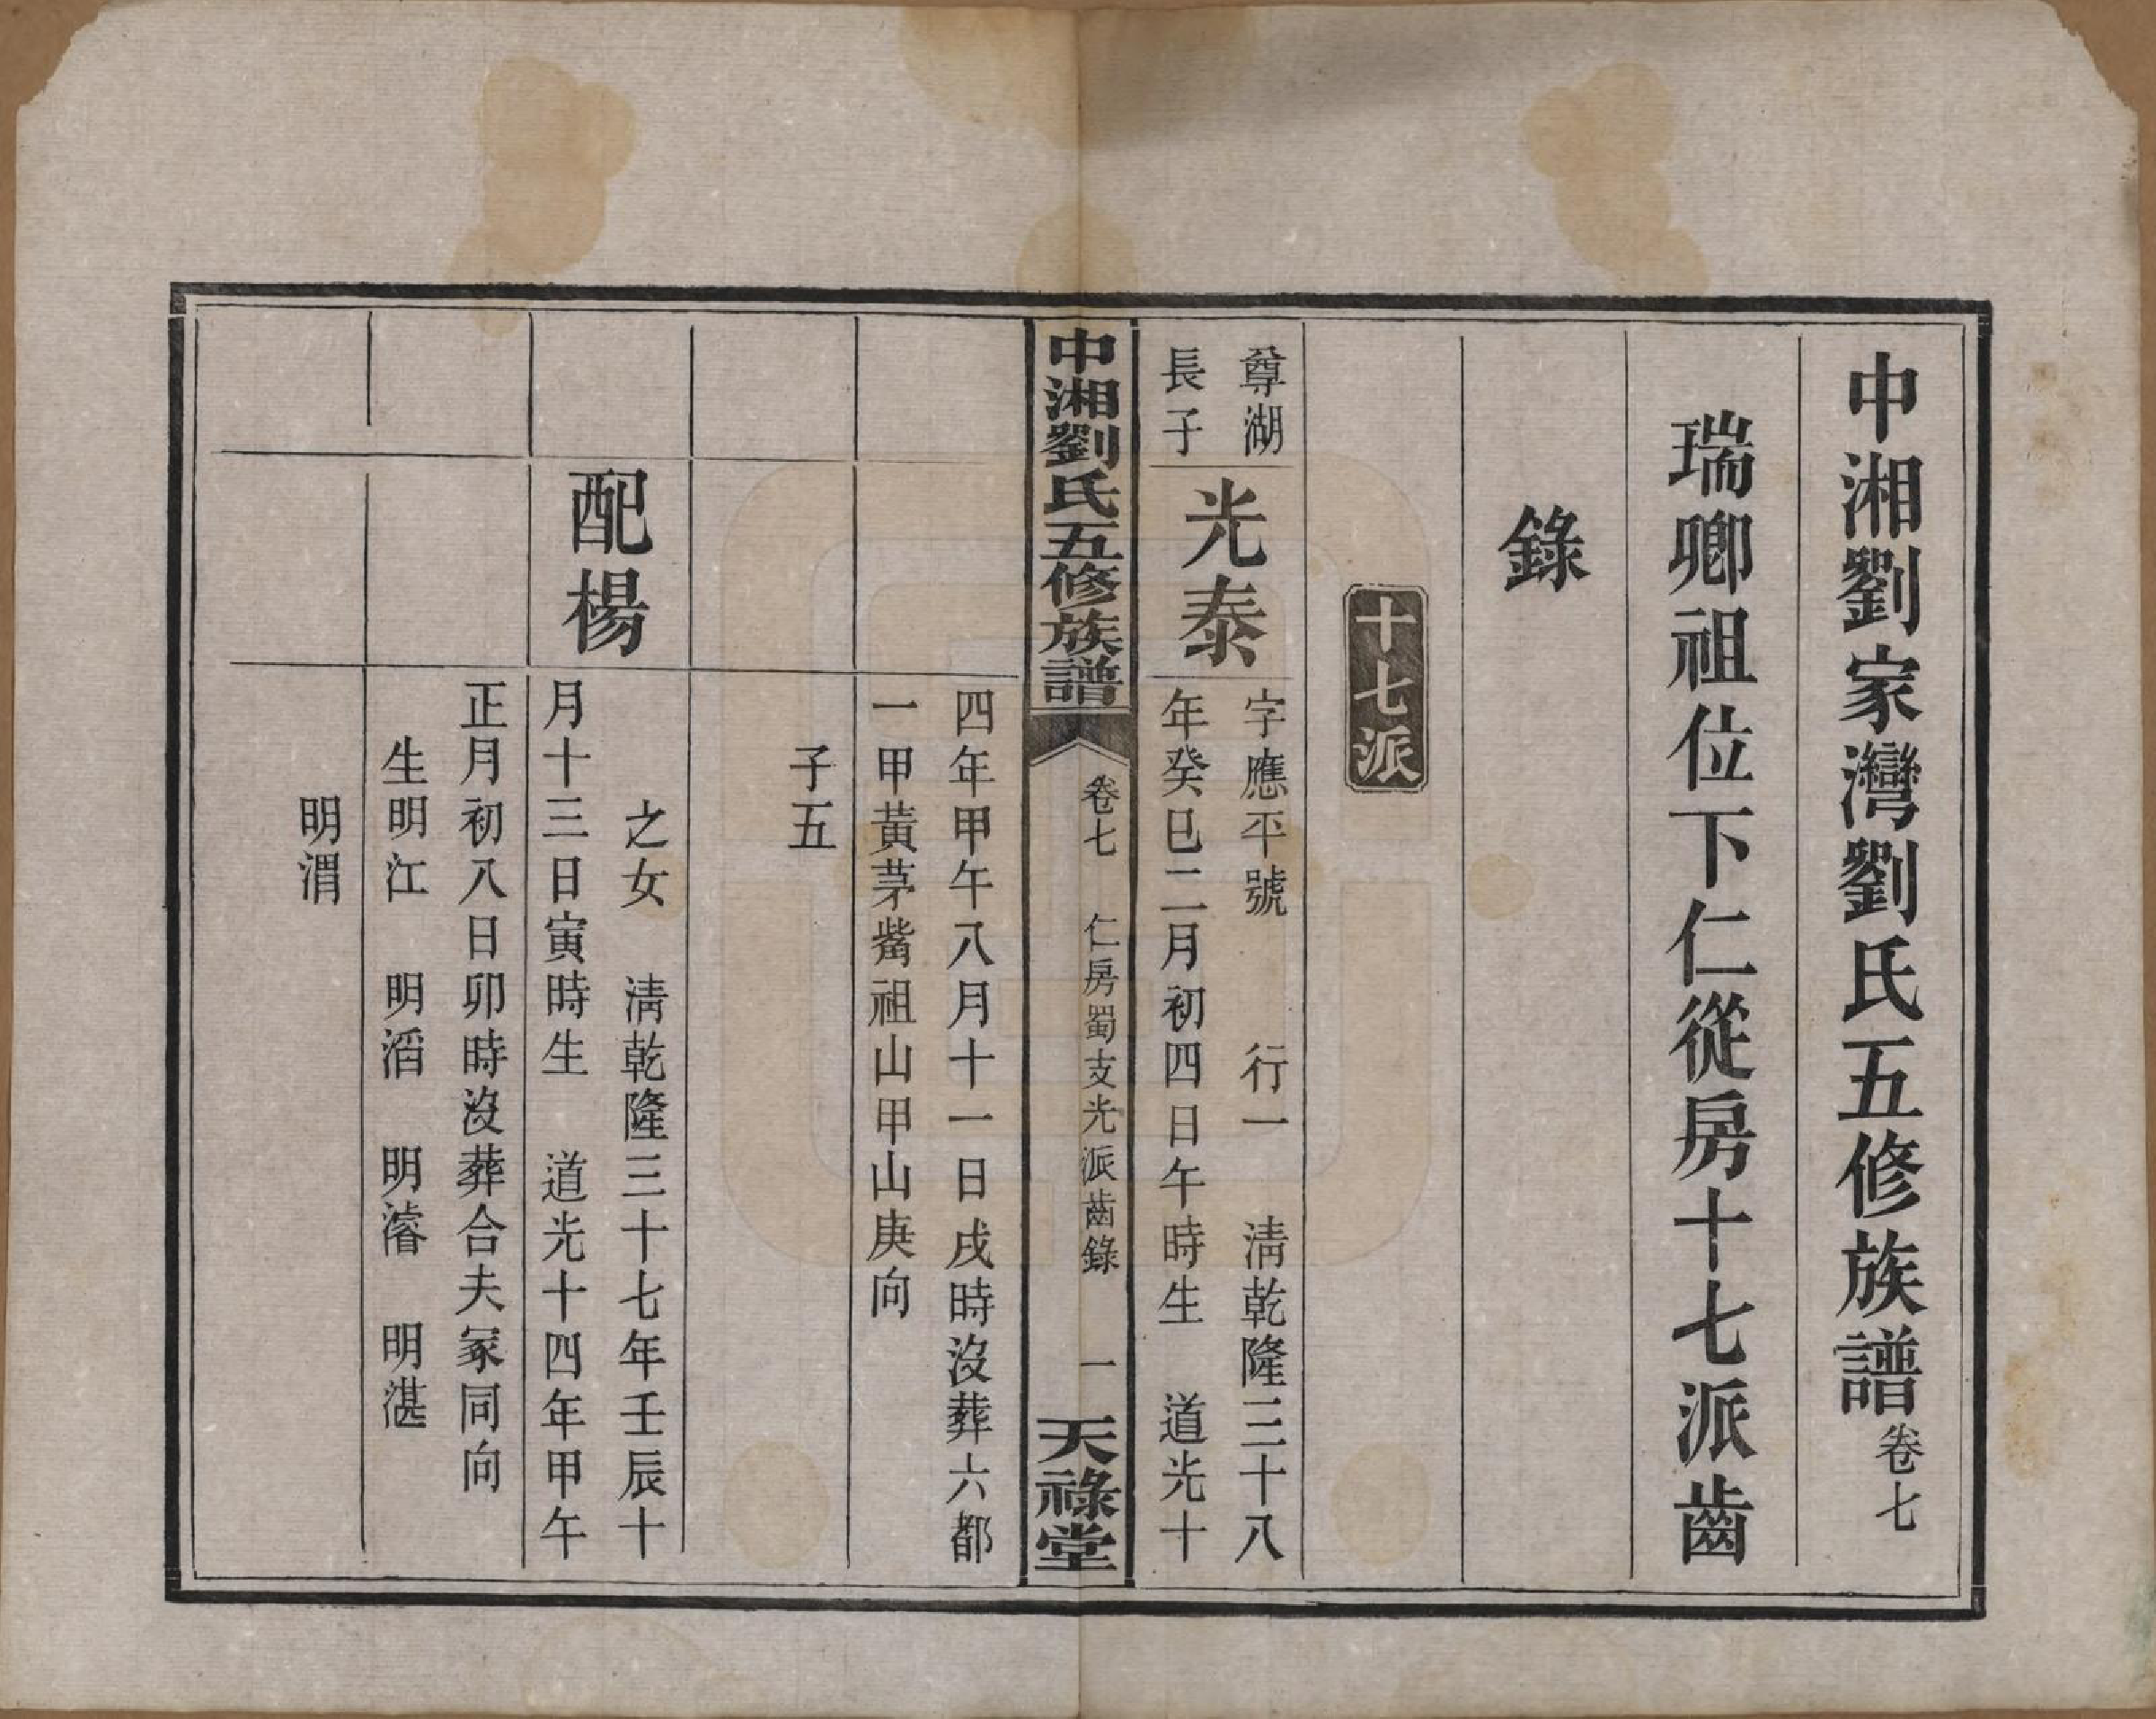 中湘劉家灣劉氏五修族譜卷七
瑞卿祖位下仁從房十七派齒
錄
十七派
尊湖
長子
光泰
字應平號　行一　清乾隆三十八
年癸巳二月初四日午時生　道光十
中湘劉氏五修族譜
卷七　仁房蜀支光派齒錄　一
天祿堂
四年甲午八月十一日戌時沒葬六都
一甲黃茅觜祖山甲山庚向
子五
配楊
之女　清乾隆三十七年壬辰十
月十三日寅時生　道光十四年甲午
正月初八日卯時沒葬合夫冢同向
生明江　明滔　明濬　明湛
明渭